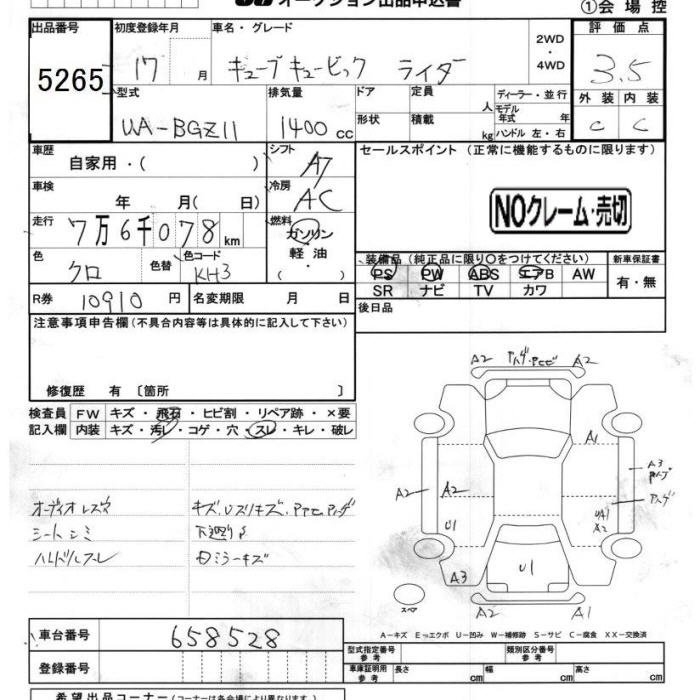 オークション出品申込書
①会場控
出品番号 初度登録年月 車名・グレード 評価点
5265 17 月 キューブ キュービック ライダ 2WD ・4WD 3.5
型式 排気量 ドア 定員 人 ディーラー・並行 外装 内装
UA-BGZ11 1400 cc 形状 積載 kg モデル年式 年 ハンドル 左・右 C C
車歴 シフト セールスポイント (正常に機能するものに限ります)
自家用・( ) AT
車検 冷房
年 月( 日) AC NOクレーム・売切
走行 燃料
7万6千078 km ガソリン
軽油
色 色替 色コード ( ・ )
クロ KH3
装備品 (純正品に限り○をつけてください) 新車保証書
PS PW ABS エアB AW 有・無
SR ナビ TV カワ
R券 10910 円 名変期限 月 日 後日品
注意事項申告欄 (不具合内容等は具体的に記入して下さい)
修復歴 有 〔箇所 〕
検査員 FW キズ・飛石・ヒビ割・リペア跡・×要
記入欄 内装 キズ・汚レ・コゲ・穴・スレ・キレ・破レ
A2 A2
A1
A2 A2 A3
U1 UA1
A2
A3 U1
スペア A2 A1
オーディオレス
シートシミ
ハンドルスレ
A-キズ E-エクボ U-凹み W-補修跡 S-サビ C-腐食 XX-交換済
車台番号 658528 型式指定番号 参考 類別区分番号 参考
登録番号 車庫証明用 参考 長さ cm 幅 cm 高さ cm
希望出品コーナー